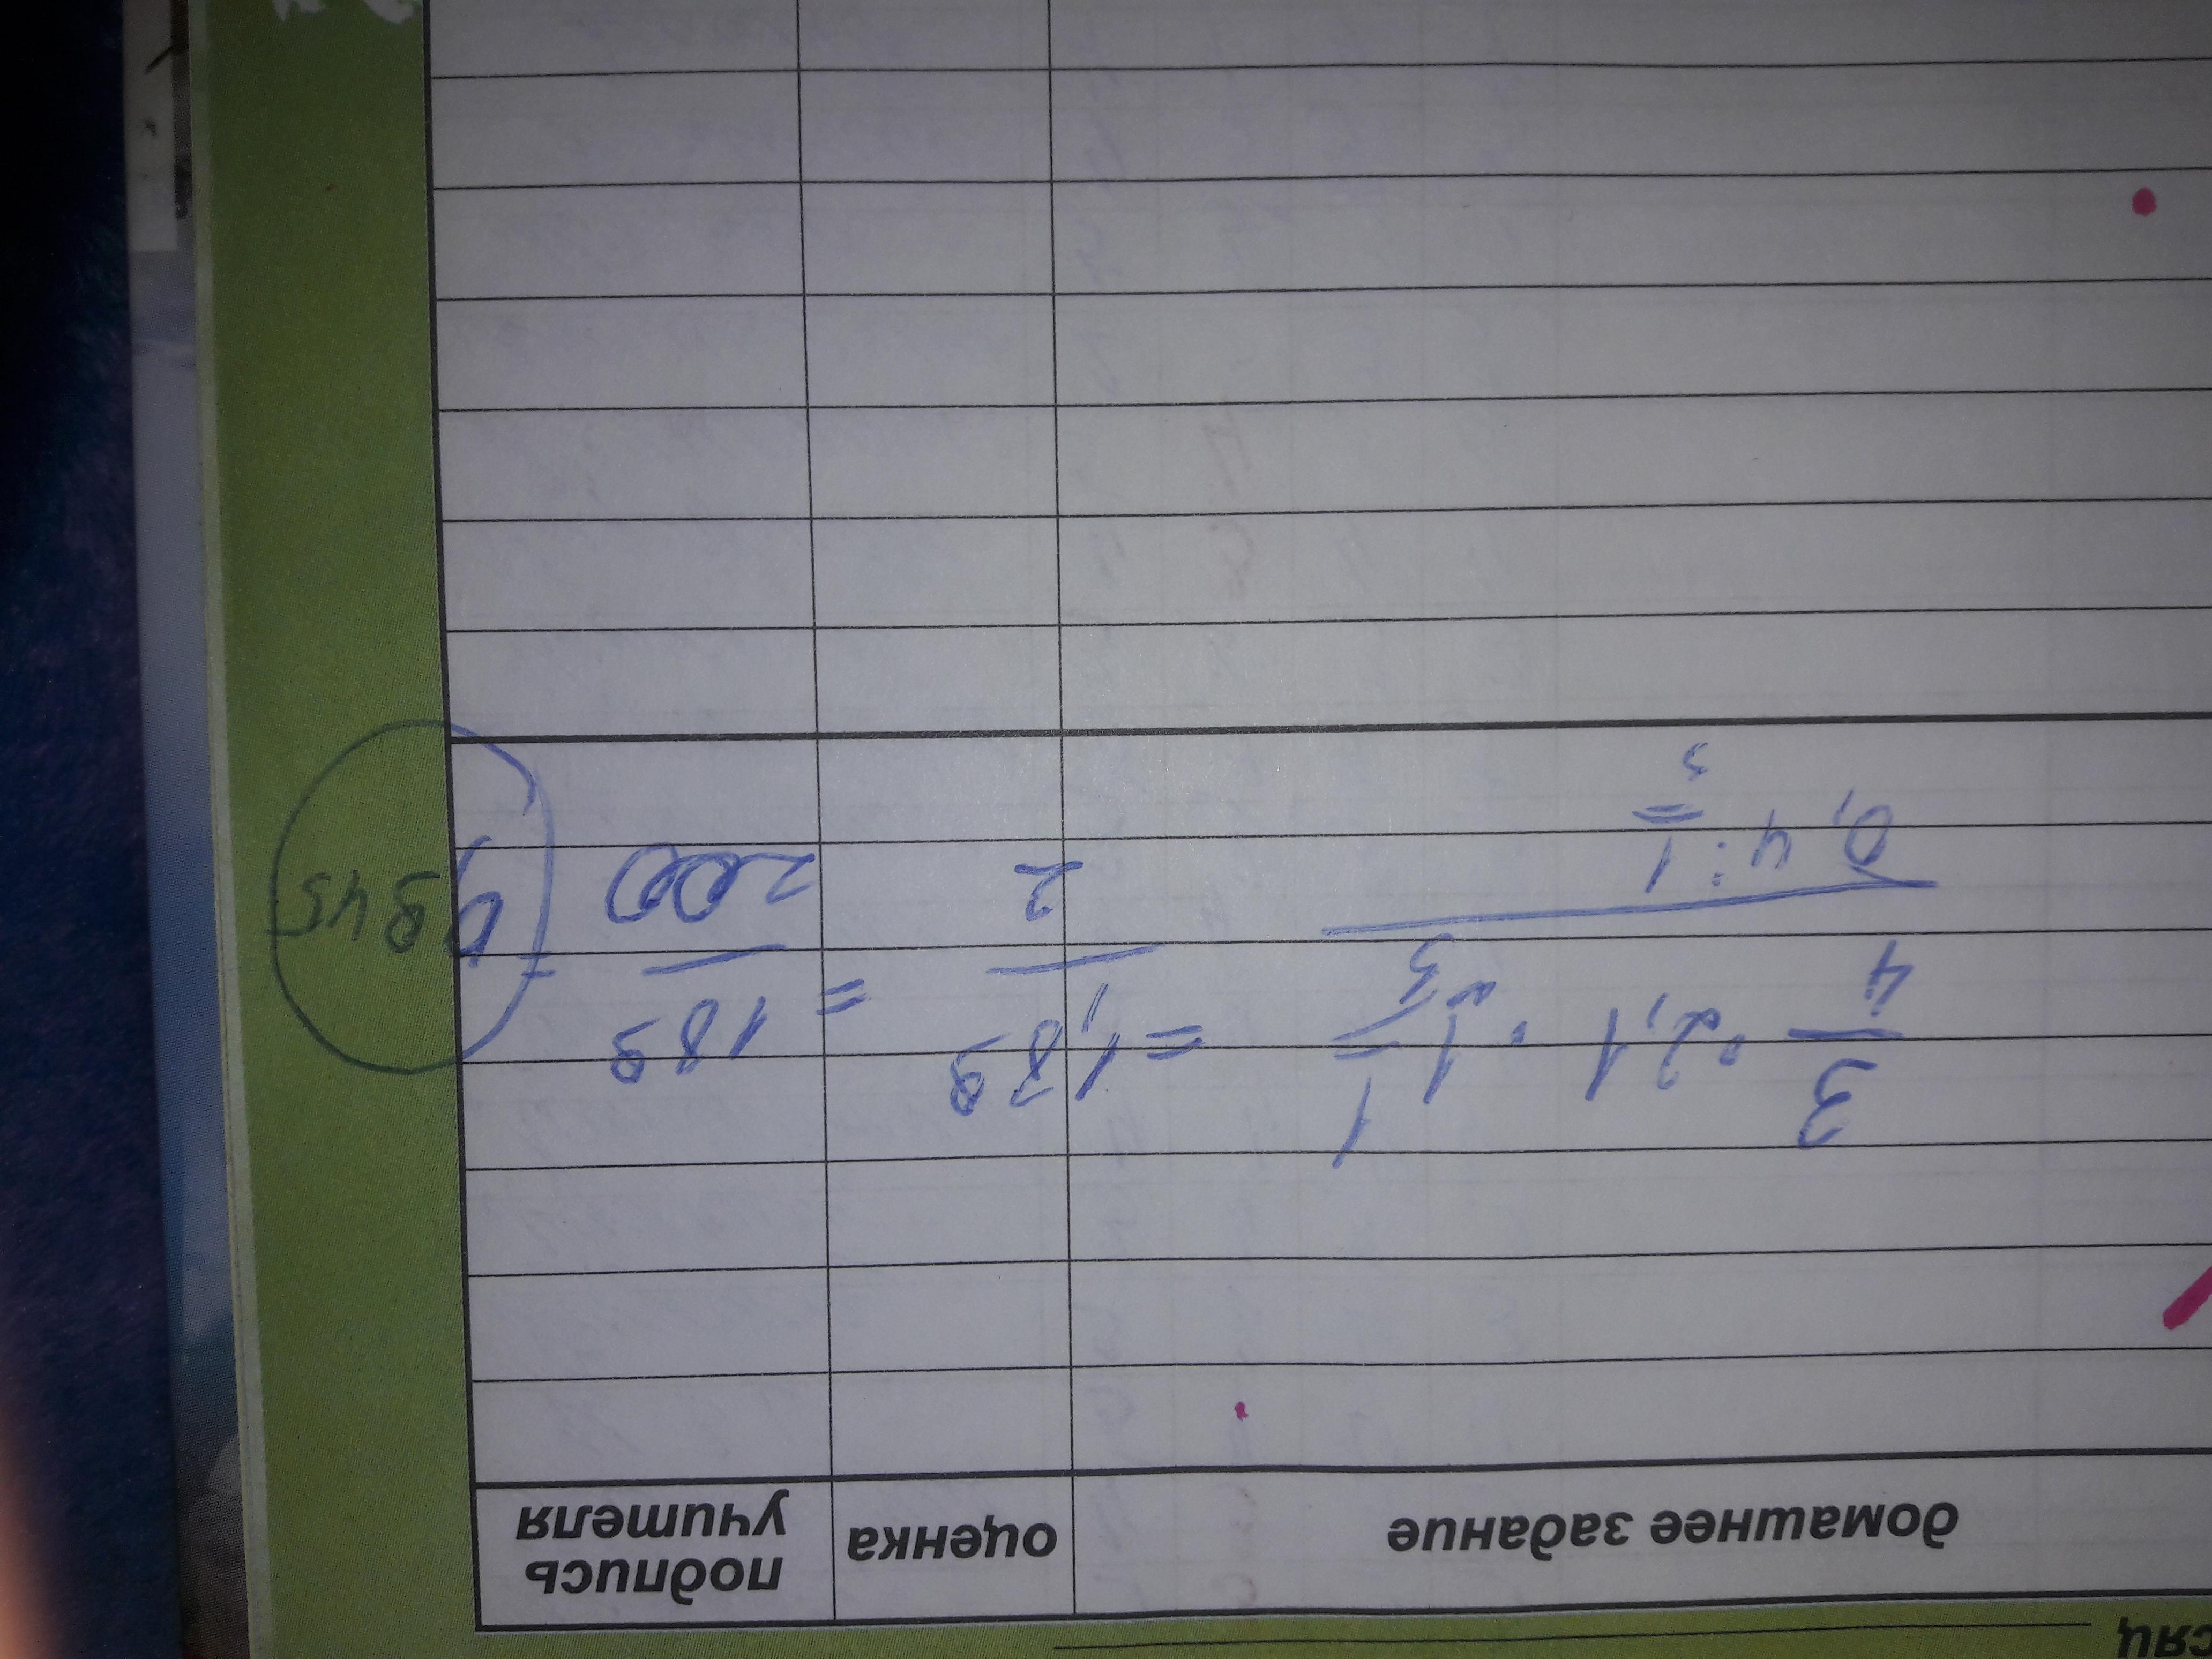 сяц
домашнее задание
оценка
подпись
учителя
3/4 · 2,1 · 1 1/5 = 1,89/2 = 189/200
0,4 : 1/5